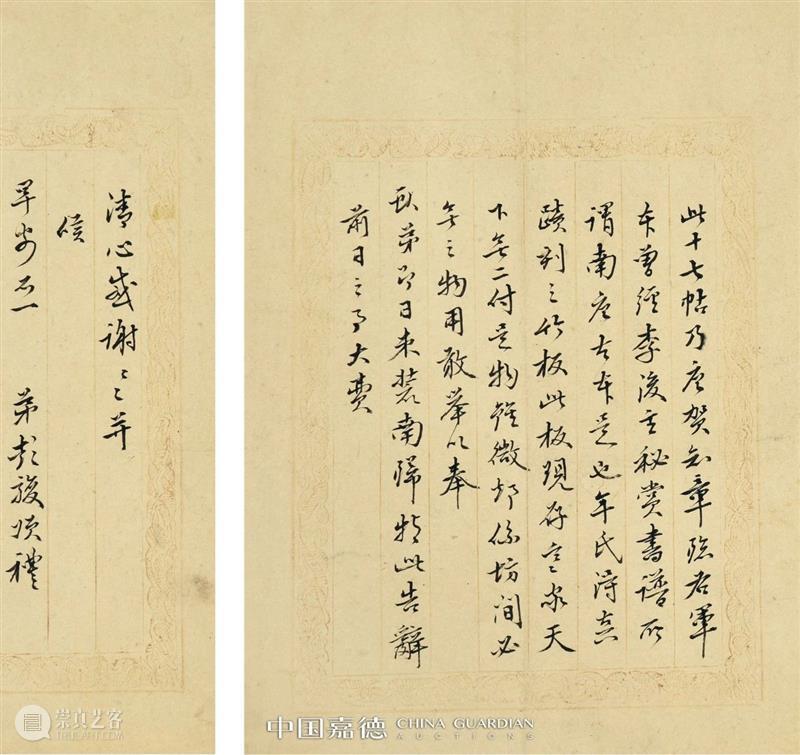 此十七帖乃唐賀知章臨右軍
本曾經李後主秘賞書譜所
謂南唐古本是也年氏得真
蹟刻之竹板此板現存寒家天
下無二付是物雖微却係坊間必
無之物用敢舉以奉
獻弟即日束裝南歸特此告辭
前日之事大費
清心感謝〻〻并
候
早安不一 弟彭駿頓禮
崇真艺客
中国嘉德
CHINA GUARDIAN
AUCTIONS